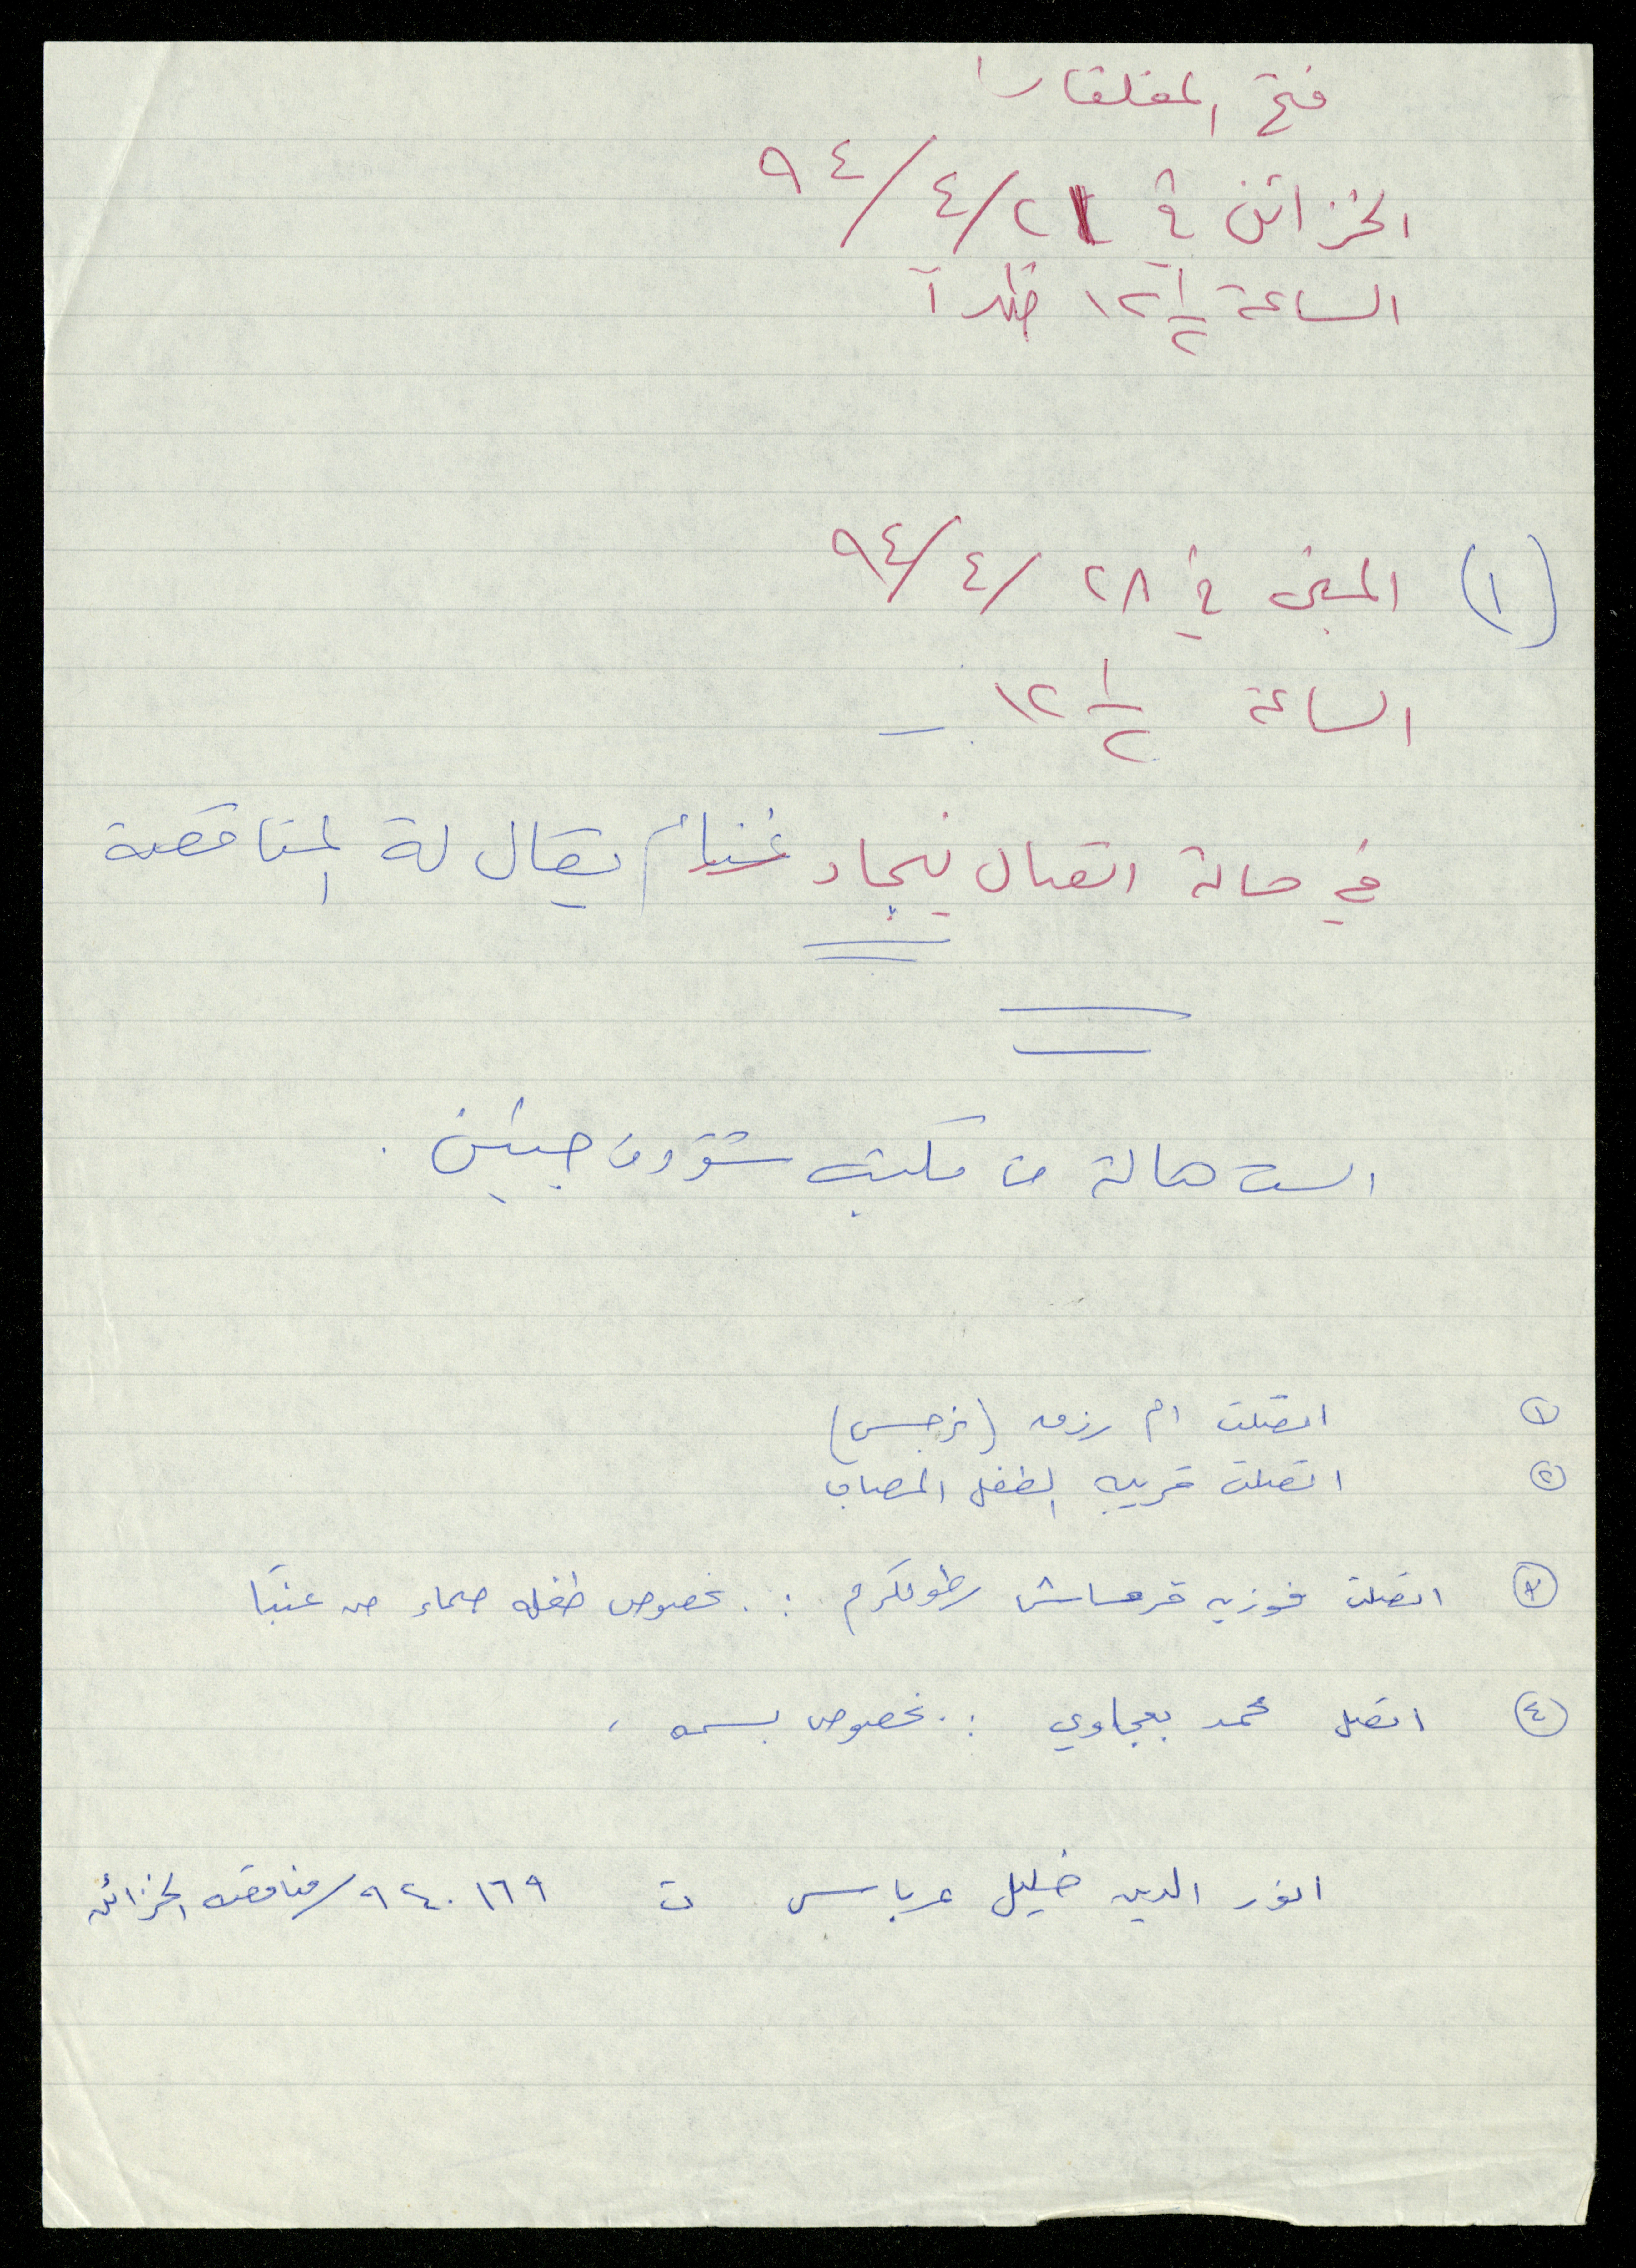 فتح المغلقات
الخزائن في ٩٤/٤/٢١
الساعة ١٢ ١/٢ ظهراً
(١) المبنى في ٩٤/٤/٢٨
الساعة ١٢ ١/٢
في حالة اتصال نيجاد غنام يقال له المناقصة
الست هالة من مكتب شؤون جنين .
١ اتصلت ام رزق (نرجس)
٢ اتصلت قريبه الطفل المصاب
٣ اتصلت فوزيه قرمش طولكرم : بخصوص طفله صماء من عنبتا
٤ اتصل محمد بعجاوي : بخصوص بسمه
نور الدين خليل عرباسي ت ٩٤٠١٦٩ / مناقصه الخزائن